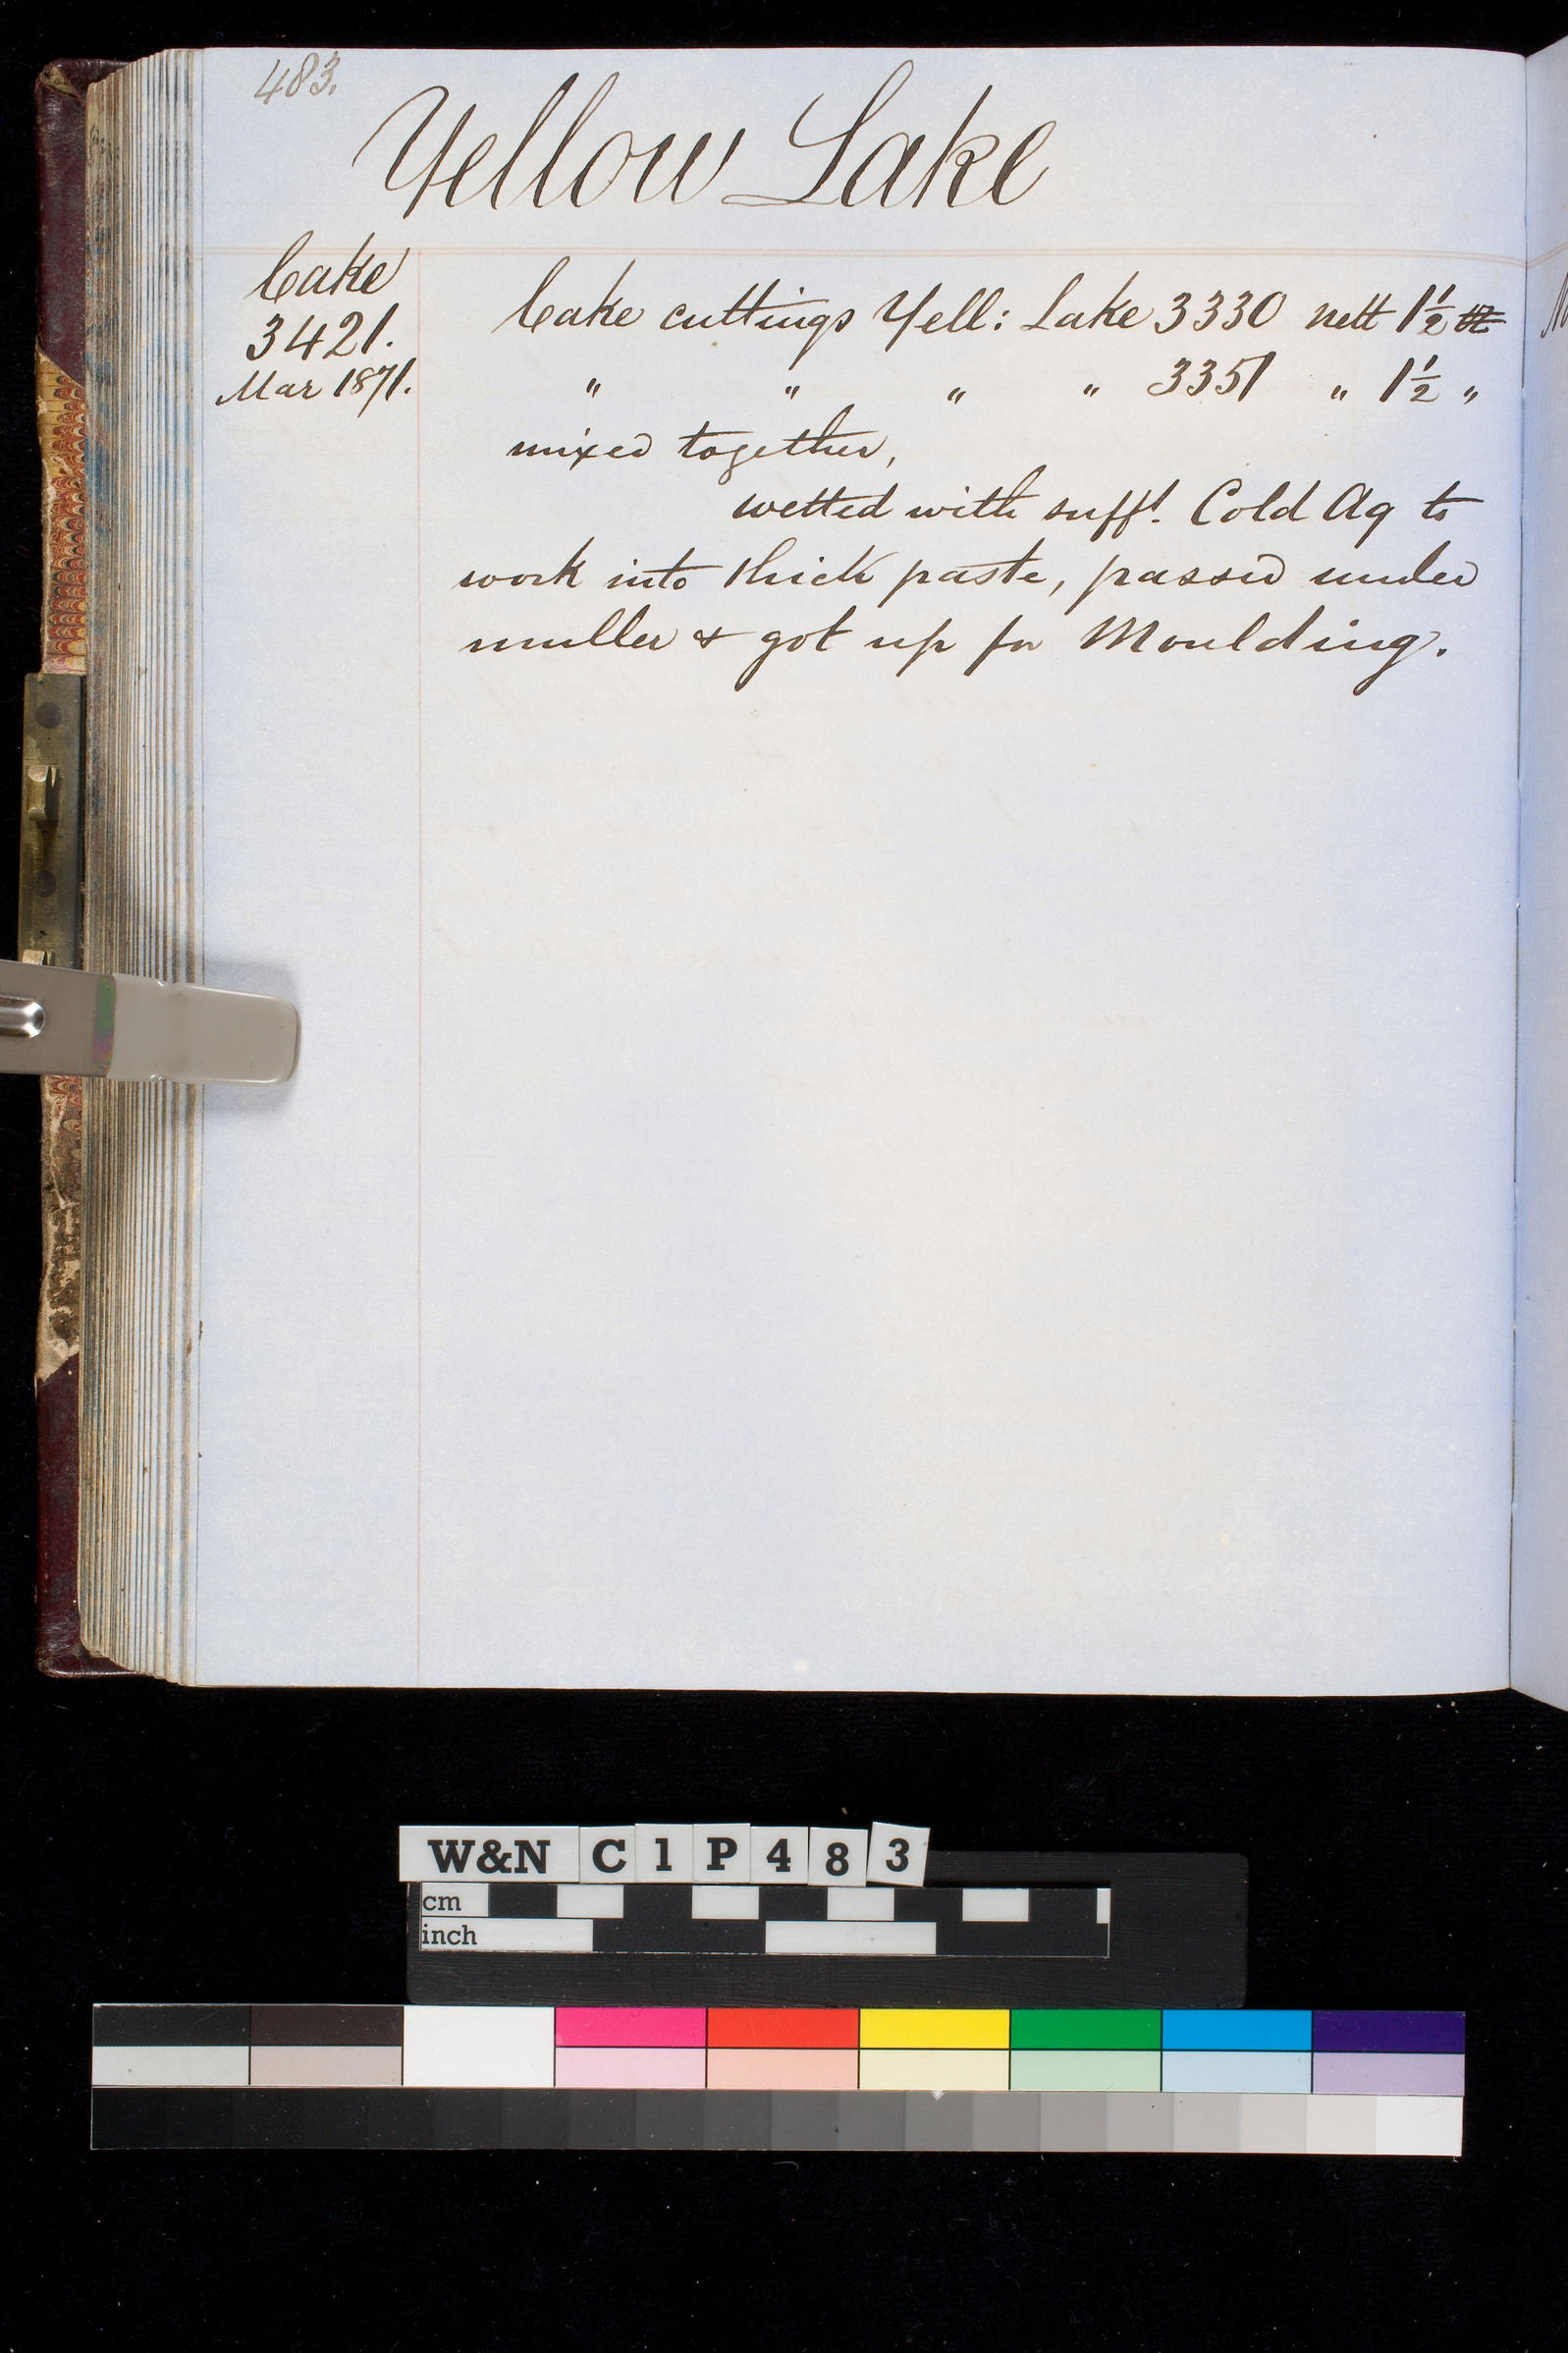 483.
Yellow Lake
Cake
3421.
Mar 1871.
Cake cuttings Yell: Lake 3330 nett 1½ ℔
" " " " 3351 " 1½ "
mixed together,
wetted with suff! Cold Aq to
work into thick paste, passed under
muller & got up for Moulding.
W&N C1P483
cm
inch